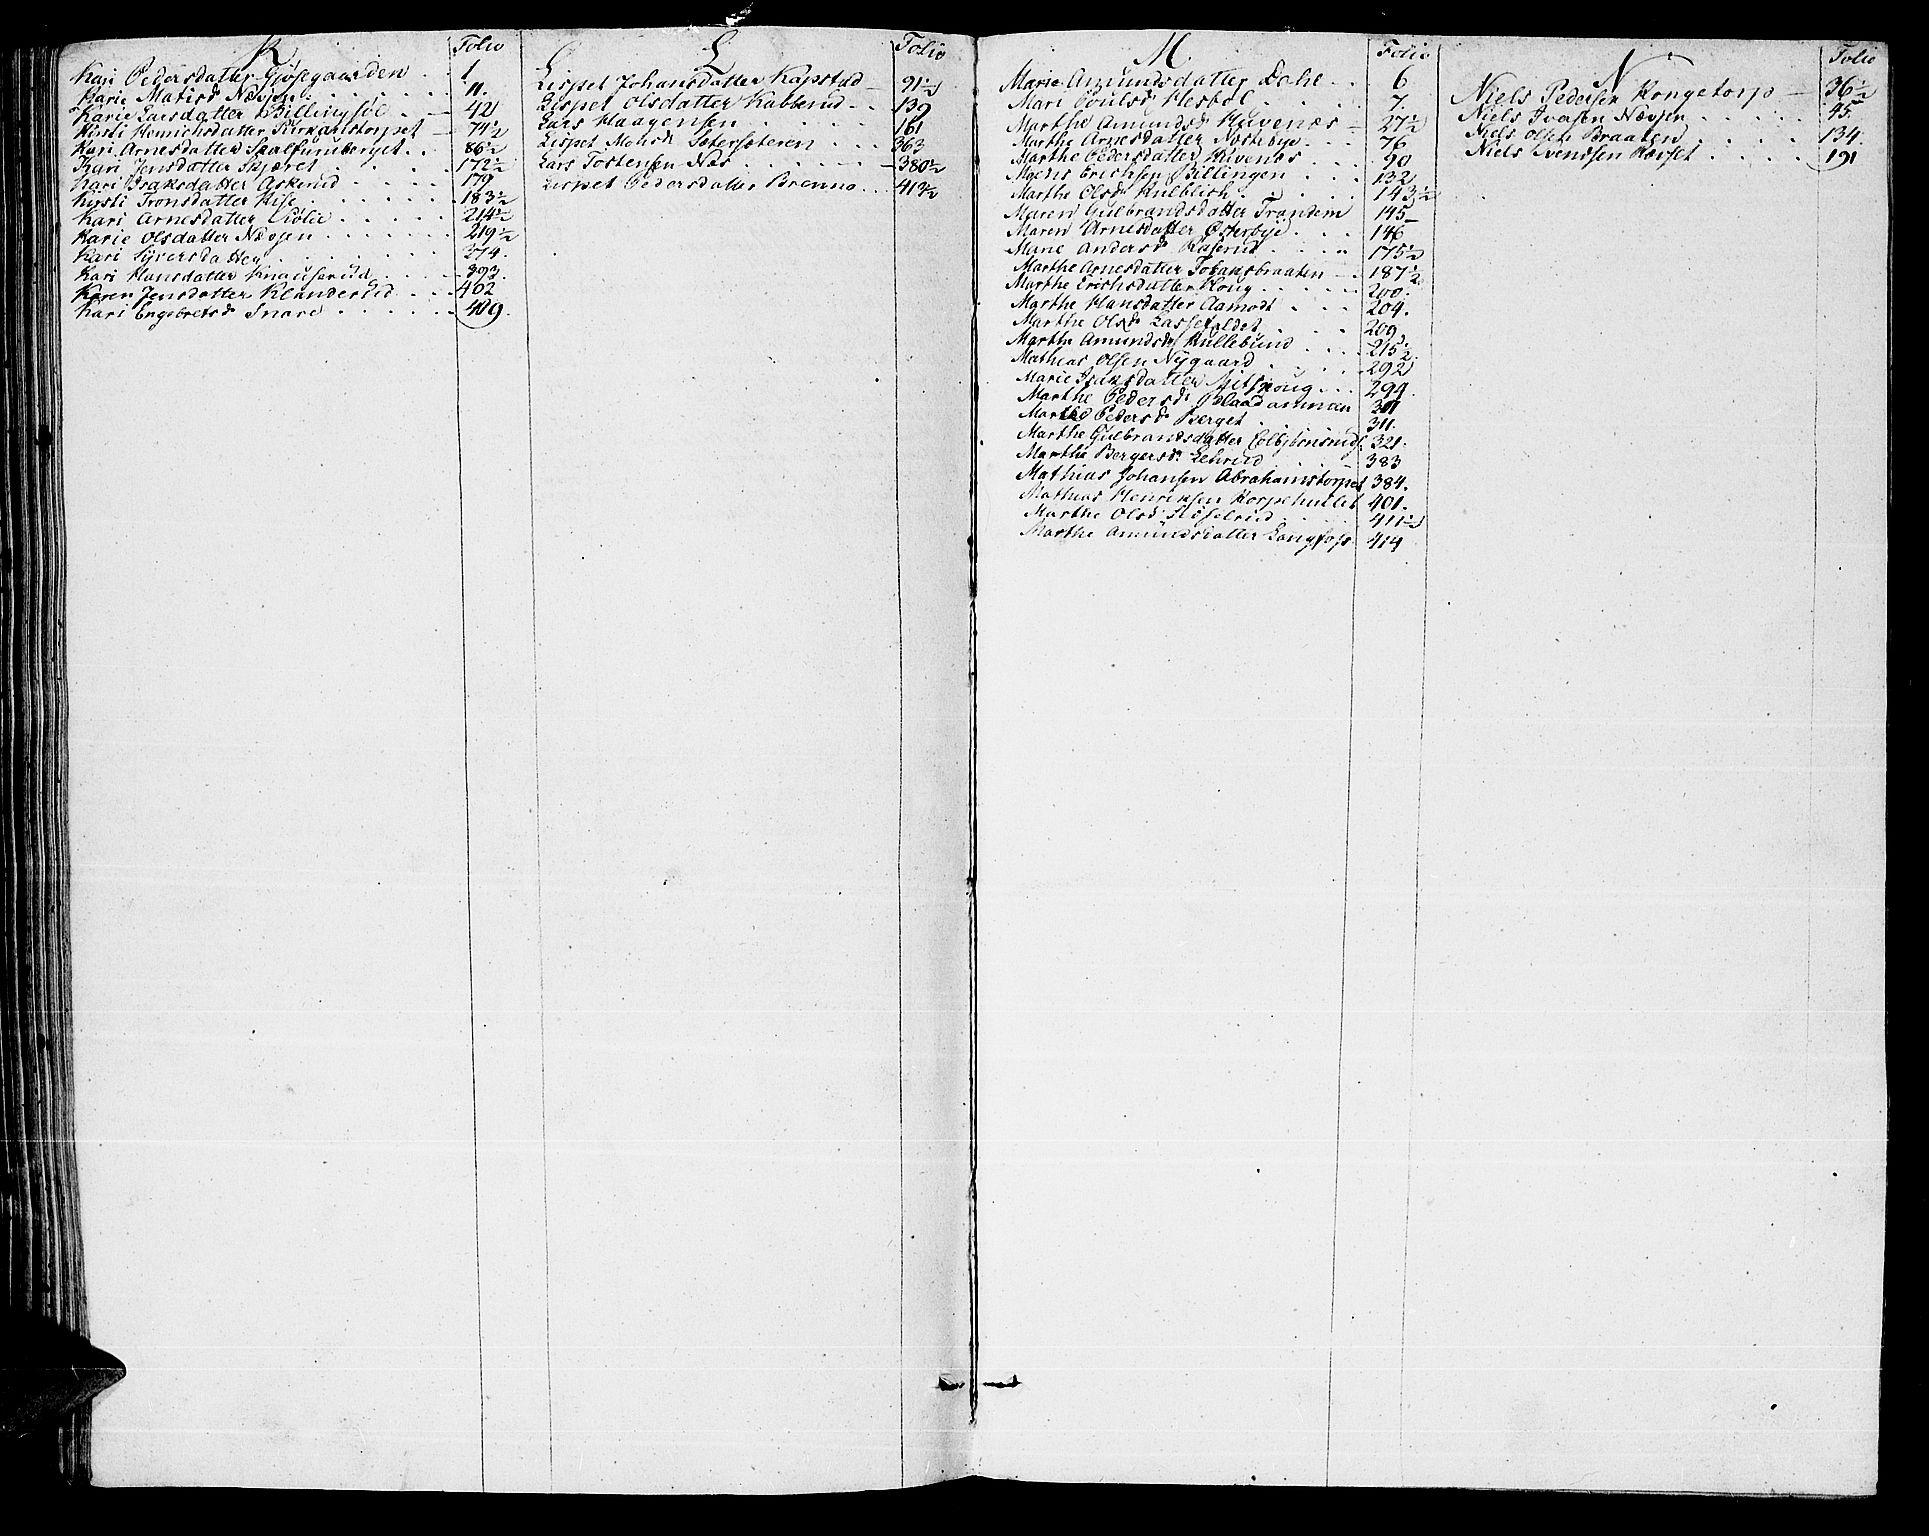 K Folio
Kari Pedersdatter Gjøsegaarden 1
Karie Matisdr Næssen 11.
Karie Larsdatter Billingsøe 42
Kirsti Henrichsdatter Kirkamstorpset 74½
Kari Arnesdatter 86½
Kari Jensdatter Skjæret 172½
Kari Isaksdatter Askerud 179
Kirsti Tronsdatter Rise 183½
Kari Arnesdatter Liølie 214½
Karie Olsdatter Næssen 219½
Kari Syversdatter 274.
Kari Hansdatter Knauserud 393.
Karen Jensdatter Klanderud 402
Kari Engebretsdr Snare 409.
L Folio
Lispet Johansdatter Kapstad 91½
Lispet Olsdatter Kabberud 139
Lars Haagensen 161
Lispet Monsdr Sætersæteren 363
Lars Tostensen Næs 380½
Lispet Pedersdatter Brenna 413½
M Folio
Marie Amundsdatter Dahl 6
Mari Poulsdr Hesbøl 7.
Marthe Amundsdr Huvenæs 27½
Marthe Arnesdatter Nostebye 76
Marthe Pedersdatter Huvenæs 90
Mads Erichsen Billingen 132
Marthe Olsdr Kulblich 143½
Maren Gulbrandsdatter Trandem 145
Maren Arnesdatter Østerbye 146
Marie Andersdr Raserud 175½
Marthe Arnesdatter Tobaksbraaten 187½
Marthe Erichsdatter Houg 200.
Marthe Hansdatter Aamodt 204.
Marthe Olsdr Lassefaldet 209.
Marthe Amundsdr Hullebund 215½
Mathias Olsen Nygaard 292
Marie Isaksdatter 299
Marthe Pedersdr 301
Marthe Pedersdr Berget 311.
Marthe Gulbrandsdatter Colbjørnsrud 321.
Marthe Bergersdr Lehrud 383
Mathias Johansen Abrahamstorpet 384.
Mathias Henriksen Korpehullet 401.
Marthe Olsdr Sloselrud 411½
Marthe Amundsdatter Langfoss 414
N Folio
Niels Pedersen Kongetorp 36½
Niels Ivarsen Næssen 45.
Niels Olsen Braaten 134.
Niels Svendsen Ravset 191